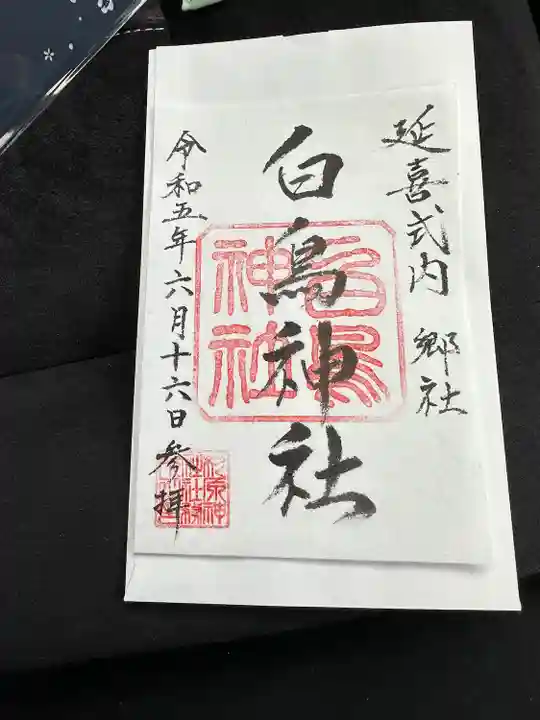 延喜式内 郷社
白鳥神社
白鳥神社
令和五年六月十六日 参拝